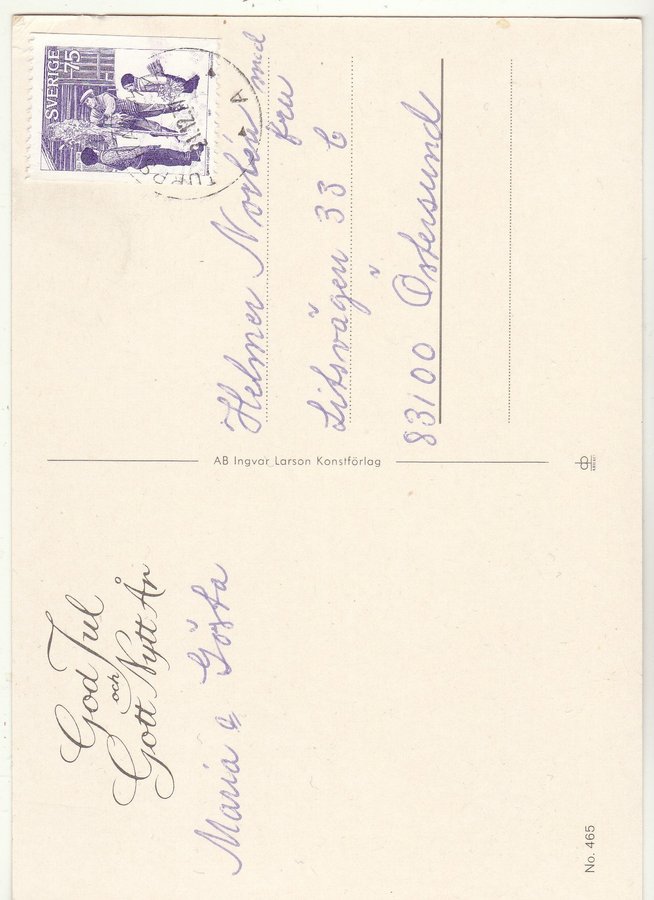 God Jul
och
Gott Nytt År
Maria & Gösta
No. 465
AB Ingvar Larson Konstförlag
SVERIGE 75
Helmer Norlén med
fru
Litsvägen 33 C
83100 Östersund